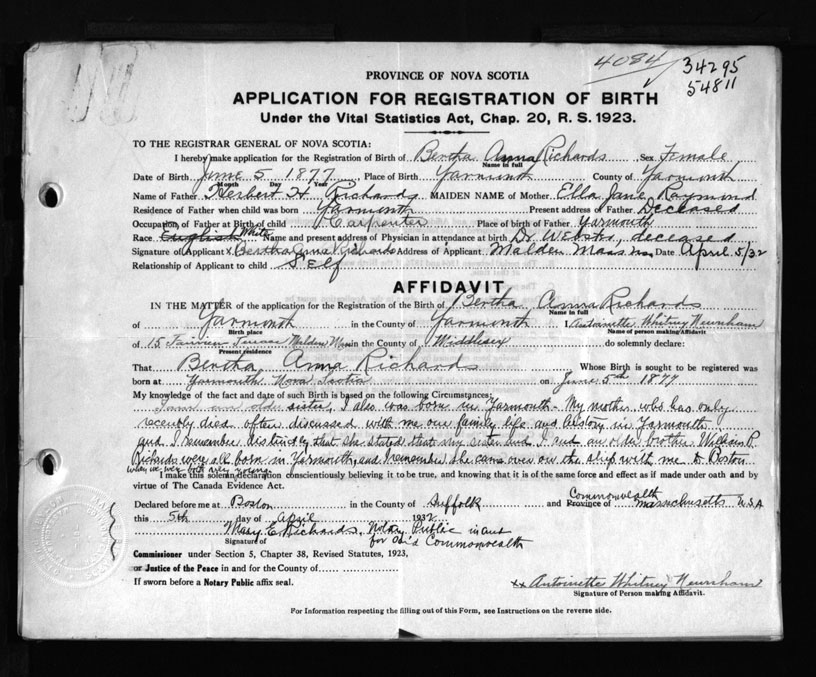 4084
34295
54811
PROVINCE OF NOVA SCOTIA
APPLICATION FOR REGISTRATION OF BIRTH
Under the Vital Statistics Act, Chap. 20, R. S. 1923.
TO THE REGISTRAR GENERAL OF NOVA SCOTIA:
I hereby make application for the Registration of Birth of Bertha Anna Richards Sex Female
Name in full
Date of Birth June 5 1877 Place of Birth Yarmouth County of Yarmouth
Month Day Year
Name of Father Herbert H Richards MAIDEN NAME of Mother Ella Jane Raymond
Residence of Father when child was born Yarmouth Present address of Father Deceased
Occupation of Father at Birth of child Carpenter Place of birth of Father Yarmouth
Race English White Name and present address of Physician in attendance at birth Dr Webster, deceased
Signature of Applicant X Bertha Anna Richards Address of Applicant Malden Mass Date April 5/32
Relationship of Applicant to child Self
AFFIDAVIT
IN THE MATTER of the application for the Registration of the Birth of Bertha Anna Richards
Name in full
of Yarmouth in the County of Yarmouth I Antoinette Whitney Newnham
Birth place Name of person making Affidavit
of 15 Terrace Malden Mass in the County of Middlesex do solemnly declare:
Present residence
That Bertha Anna Richards Whose Birth is sought to be registered was
born at Yarmouth Nova Scotia on June 5th 1877
My knowledge of the fact and date of such Birth is based on the following Circumstances:
I am an older sister, I also was born in Yarmouth - My mother who has only
recently died often discussed with me our family life and history in Yarmouth
and I remember distinctly that she stated that my sister and I and an older brother William R
Richards were all born in Yarmouth, and I remember she came over on the ship with me to Boston
when we were both very young
I make this solemn declaration conscientiously believing it to be true, and knowing that it is of the same force and effect as if made under oath and by
virtue of The Canada Evidence Act.
Declared before me at Boston in the County of Suffolk and Province of Commonwealth Massachusetts USA
this 5th day of April 1932
Mary E Richards, Notary Public in and
Signature of for Sa'd Commonwealth
Commissioner under Section 5, Chapter 38, Revised Statutes, 1923,
or Justice of the Peace in and for the County of
If sworn before a Notary Public affix seal.
xx Antoinette Whitney Newnham
Signature of Person making Affidavit.
For Information respecting the filling out of this Form, see Instructions on the reverse side.